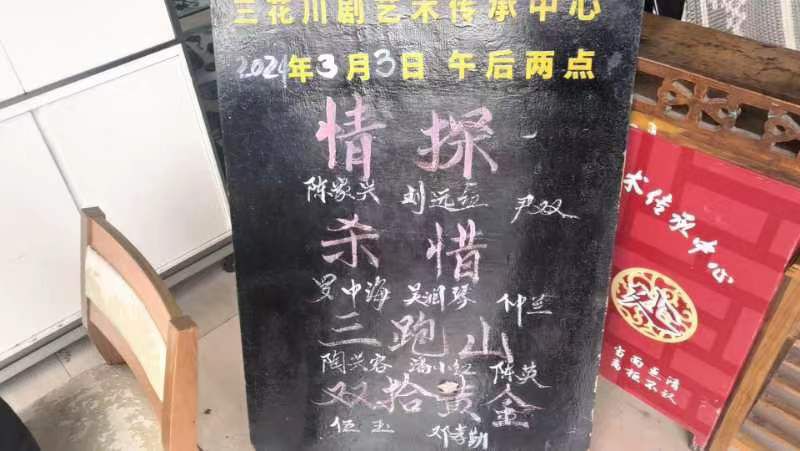 三花川剧艺术传承中心
2024年3月3日 午后两点
情探
陈家兴 刘远益 尹双
杀惜
罗中海 吴润琴 仲兰
三跑山
陶兴容 潘小红 陈英
双拾黄金
伍玉 邓孝勤
术传承中心
当面点清
离柜不认